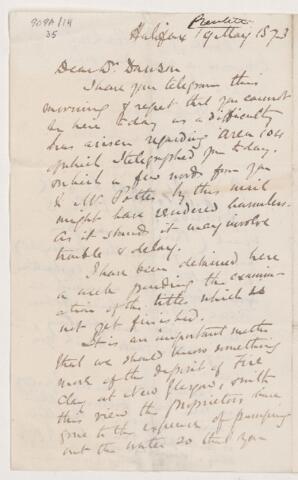 909A/14
35
Halifax 19 May 1873
Dear Dr Dawson
I have your telegram this
morning & regret that you cannot
be here today as a difficulty
has arisen regarding area 104
which I telegraphed you today.
on which a few words from you
& Mr Potter by this mail
might have rendered harmless.
As it stands it may involve
trouble & delay.
I have been detained here
a week pending the examin-
ation of the titles which is
not yet finished.
It is an important matter
that we should know something
more of the deposit of Fire
Clay at New Glasgow, & with
this view the proprietors have
gone to the expense of pumping
out the water so that you